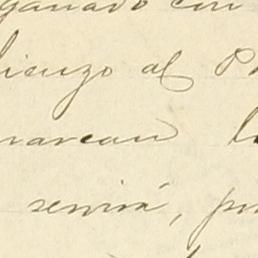 ganado con
lienzo al P
marcan l
servirá, po